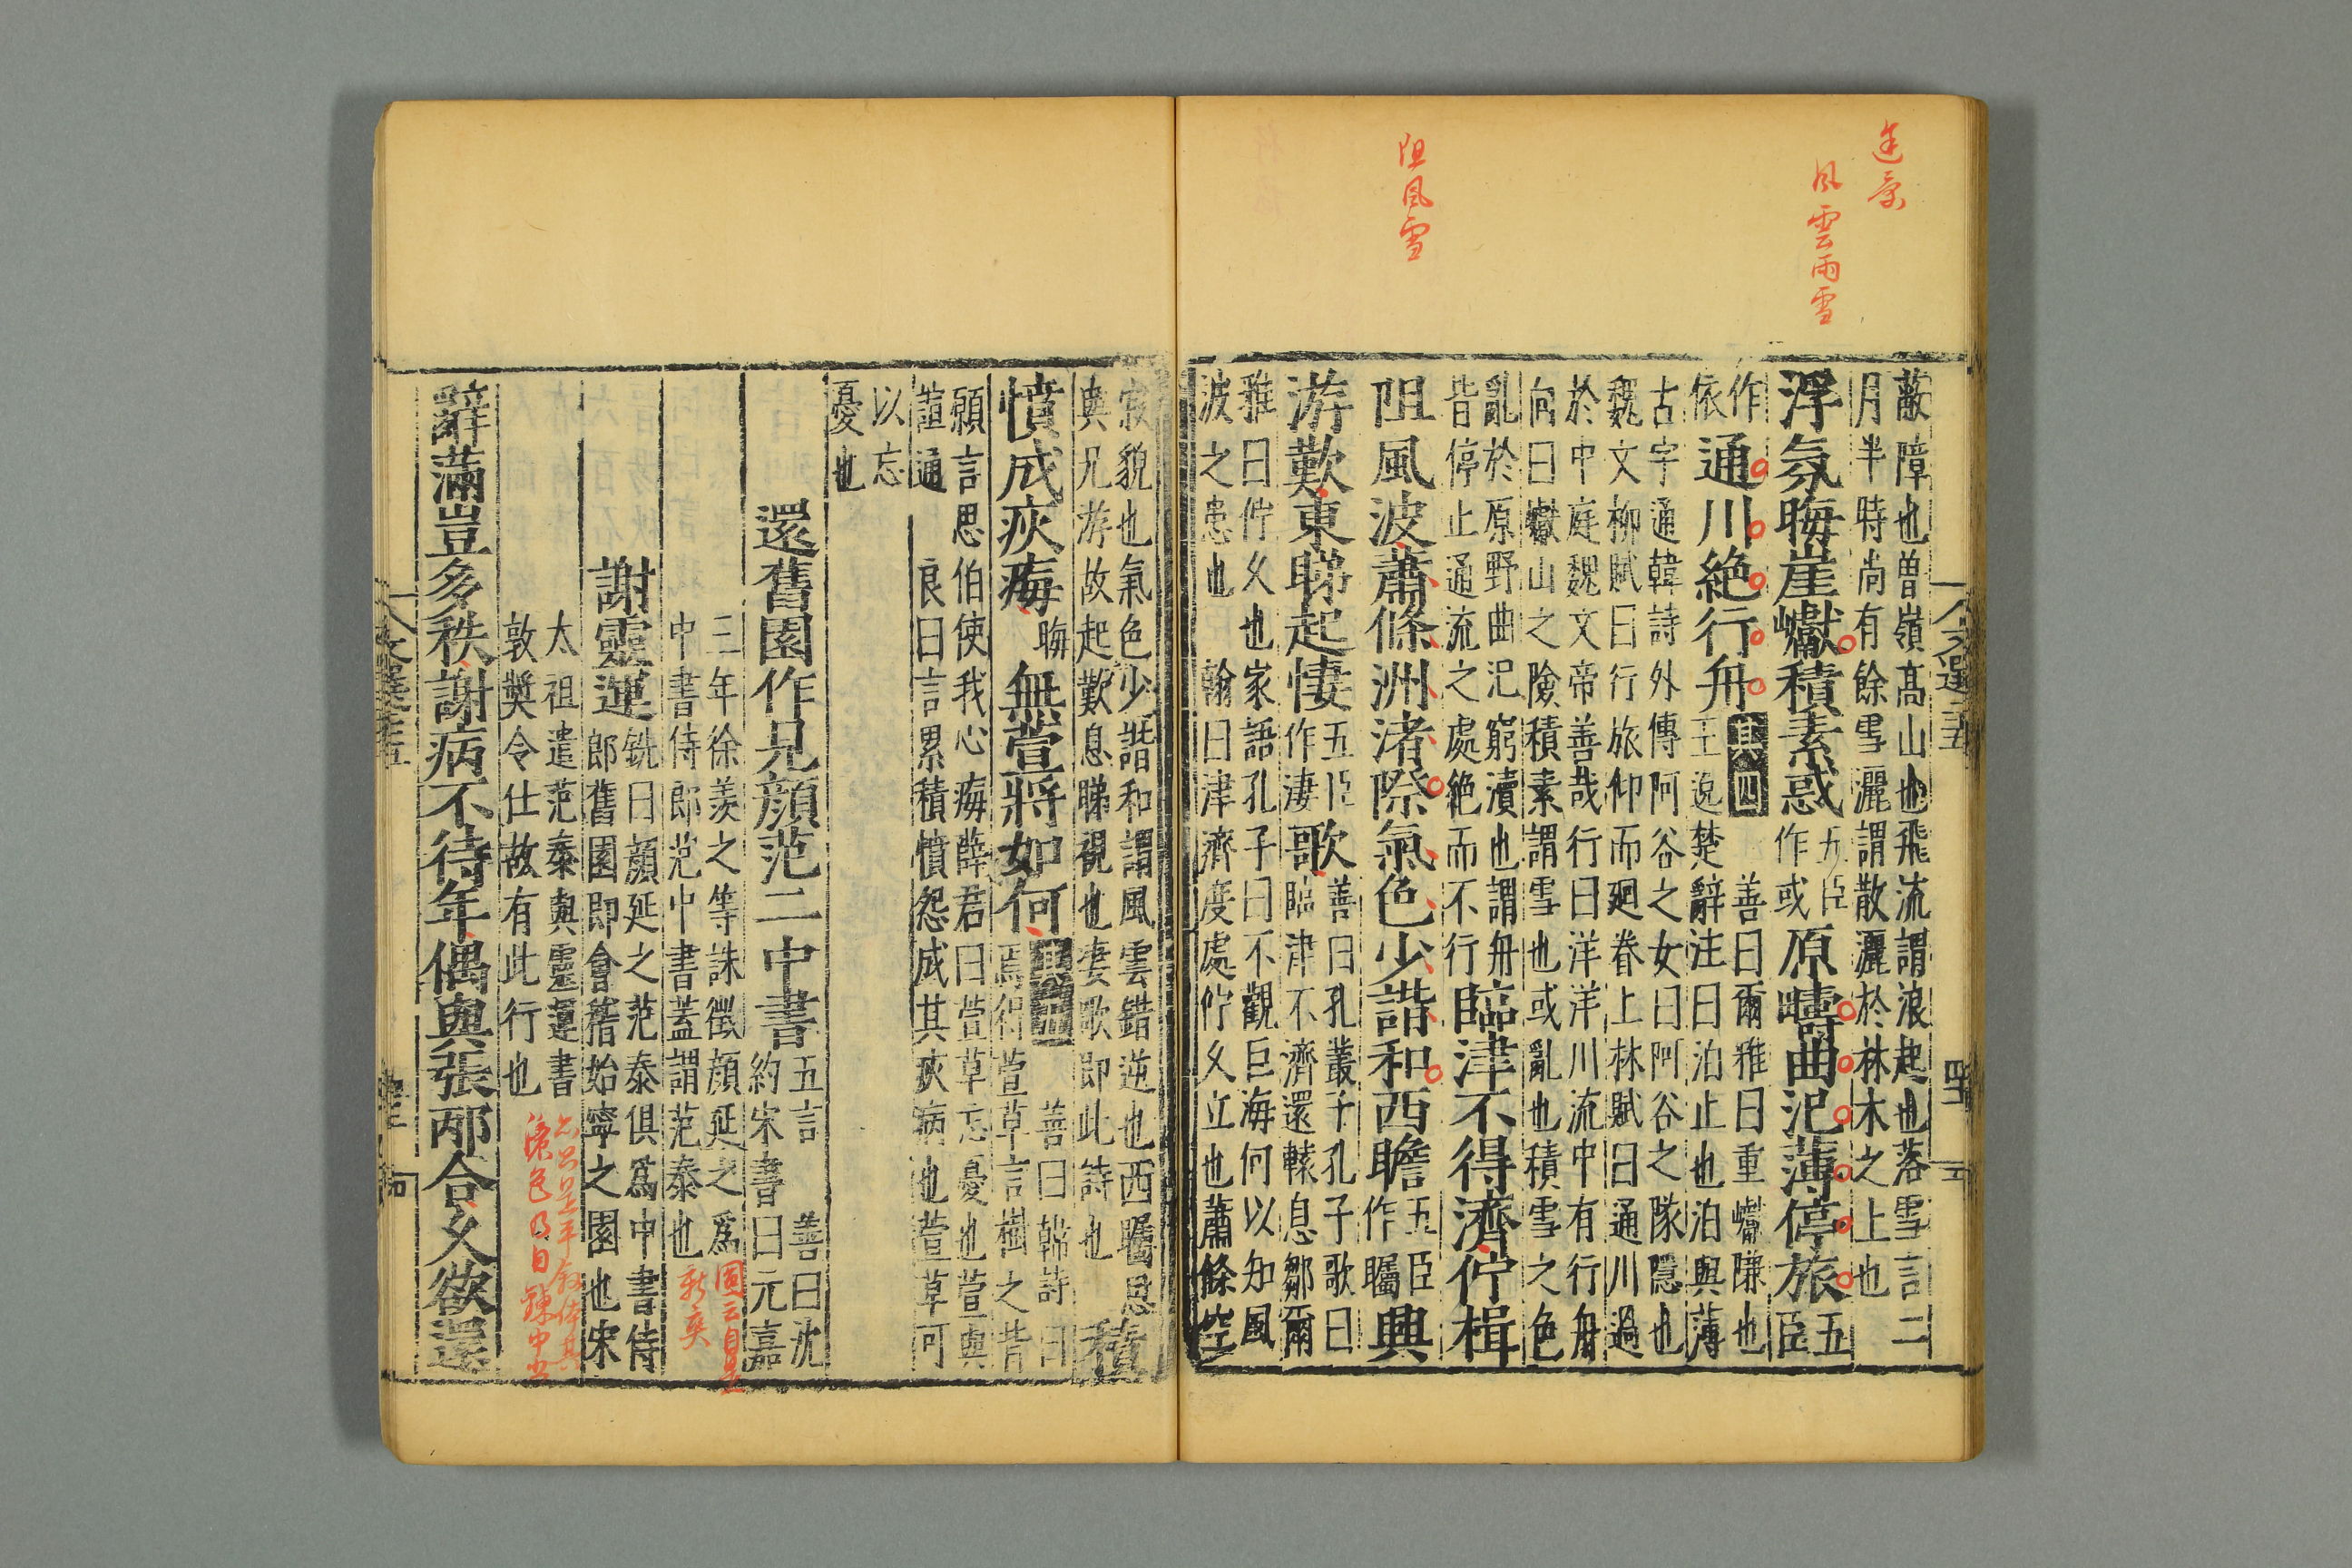 途景
風雲雨雪
阻風雪
蔽障也曽嶺高山也飛流謂浪起也落雪言二
月半時尚有餘雪灑謂散灑於林木之上也
浮氛晦崖巘積素惑五臣作或原疇曲汜薄停旅五臣
作依通川絶行舟其四善曰爾雅曰重巘隒也
王逸楚辭注曰泊止也泊與薄
古字通韓詩外傳阿谷之女曰阿谷之隊隱也
魏文柳賦曰行旅仰而廻眷上林賦曰通川過
於中庭魏文帝善哉行曰洋洋川流中有行舟
向曰巘山之險積素謂雪也或亂也積雪之色
亂於原野曲汜窮瀆也謂舟
皆停止通流之處絶而不行臨津不得濟佇楫
阻風波蕭條洲渚際氣色少諧和西瞻五臣作矚興
游歎東睇起悽五臣作淒歌善曰孔叢子孔子歌曰
臨津不濟還轅息鄒爾
雅曰佇久也家語孔子曰不觀巨海何以知風
波之患也翰曰津濟度處佇久立也蕭條空
寂貌也氣色少諧和謂風雲錯逆也西矚思
與兄游故起歎息睇視也悽歌即此詩也積
憤成疢痗晦無萱將如何其五善曰韓詩曰
焉得萱草言樹之背
願言思伯使我心痗薛君曰萱草忘憂也萱與
諠通良曰言累積憤怨成其疢病也萱草可
以忘
憂也
還舊園作見顔范二中書五言善曰沈
約宋書曰元嘉
三年徐羨之等誅徵顔延之爲
中書侍郎范中書蓋謂范泰也
謝靈運銑曰顔延之范泰俱爲中書侍
郎舊園即會稽始寧之園也宋
太祖遣范泰與靈運書
敦奬令仕故有此行也
辭滿豈多秩謝病不待年偶與張邴合久欲還